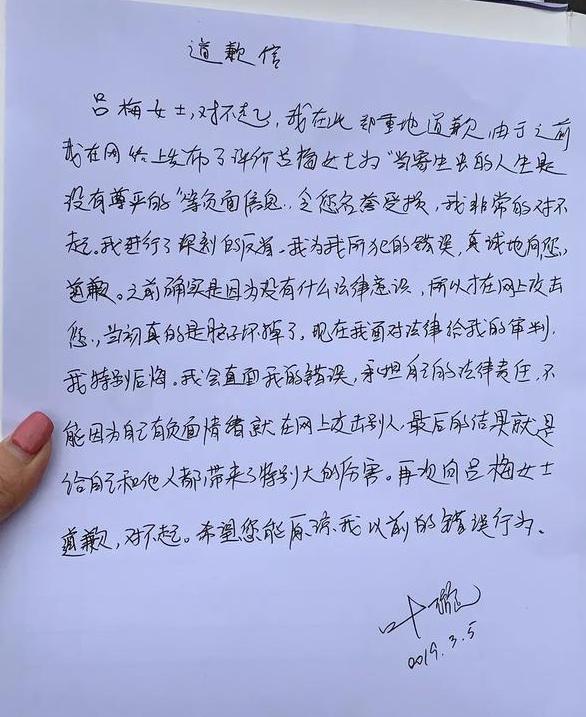 道歉信
吕梅女士，对不起，我在此郑重地道歉，由于之前
我在网络上发布了评价吕梅女士为“当寄生虫的人生是
没有尊严的”等负面信息，令您名誉受损，我非常的对不
起。我进行了深刻的反省，我为我所犯的错误，真诚地向您，
道歉。之前确实是因为没有什么法律意识，所以才在网上攻击
您，当初真的是脑子坏掉了，现在我面对法律给我的审判，
我特别后悔。我会直面我的错误，承担自己的法律责任，不
能因为自己有负面情绪就在网上攻击别人，最后的结果就是
给自己和他人都带来了特别大的伤害。再次向吕梅女士
道歉，对不起。希望您能原谅我以前的错误行为。
叶璇
2019.3.5